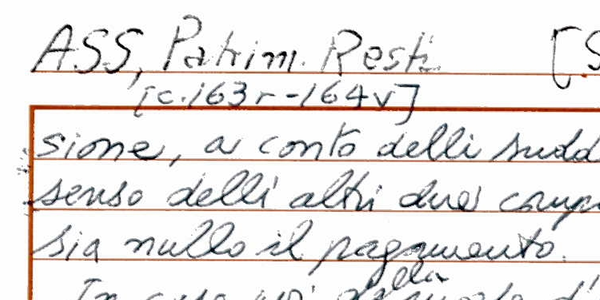 ASS, Patrim. Rest. [S
[c.163r-164v]
sione, a conto delli sudd
senso delli altri due comp
sia nullo il pagamento.
della
In caso poi